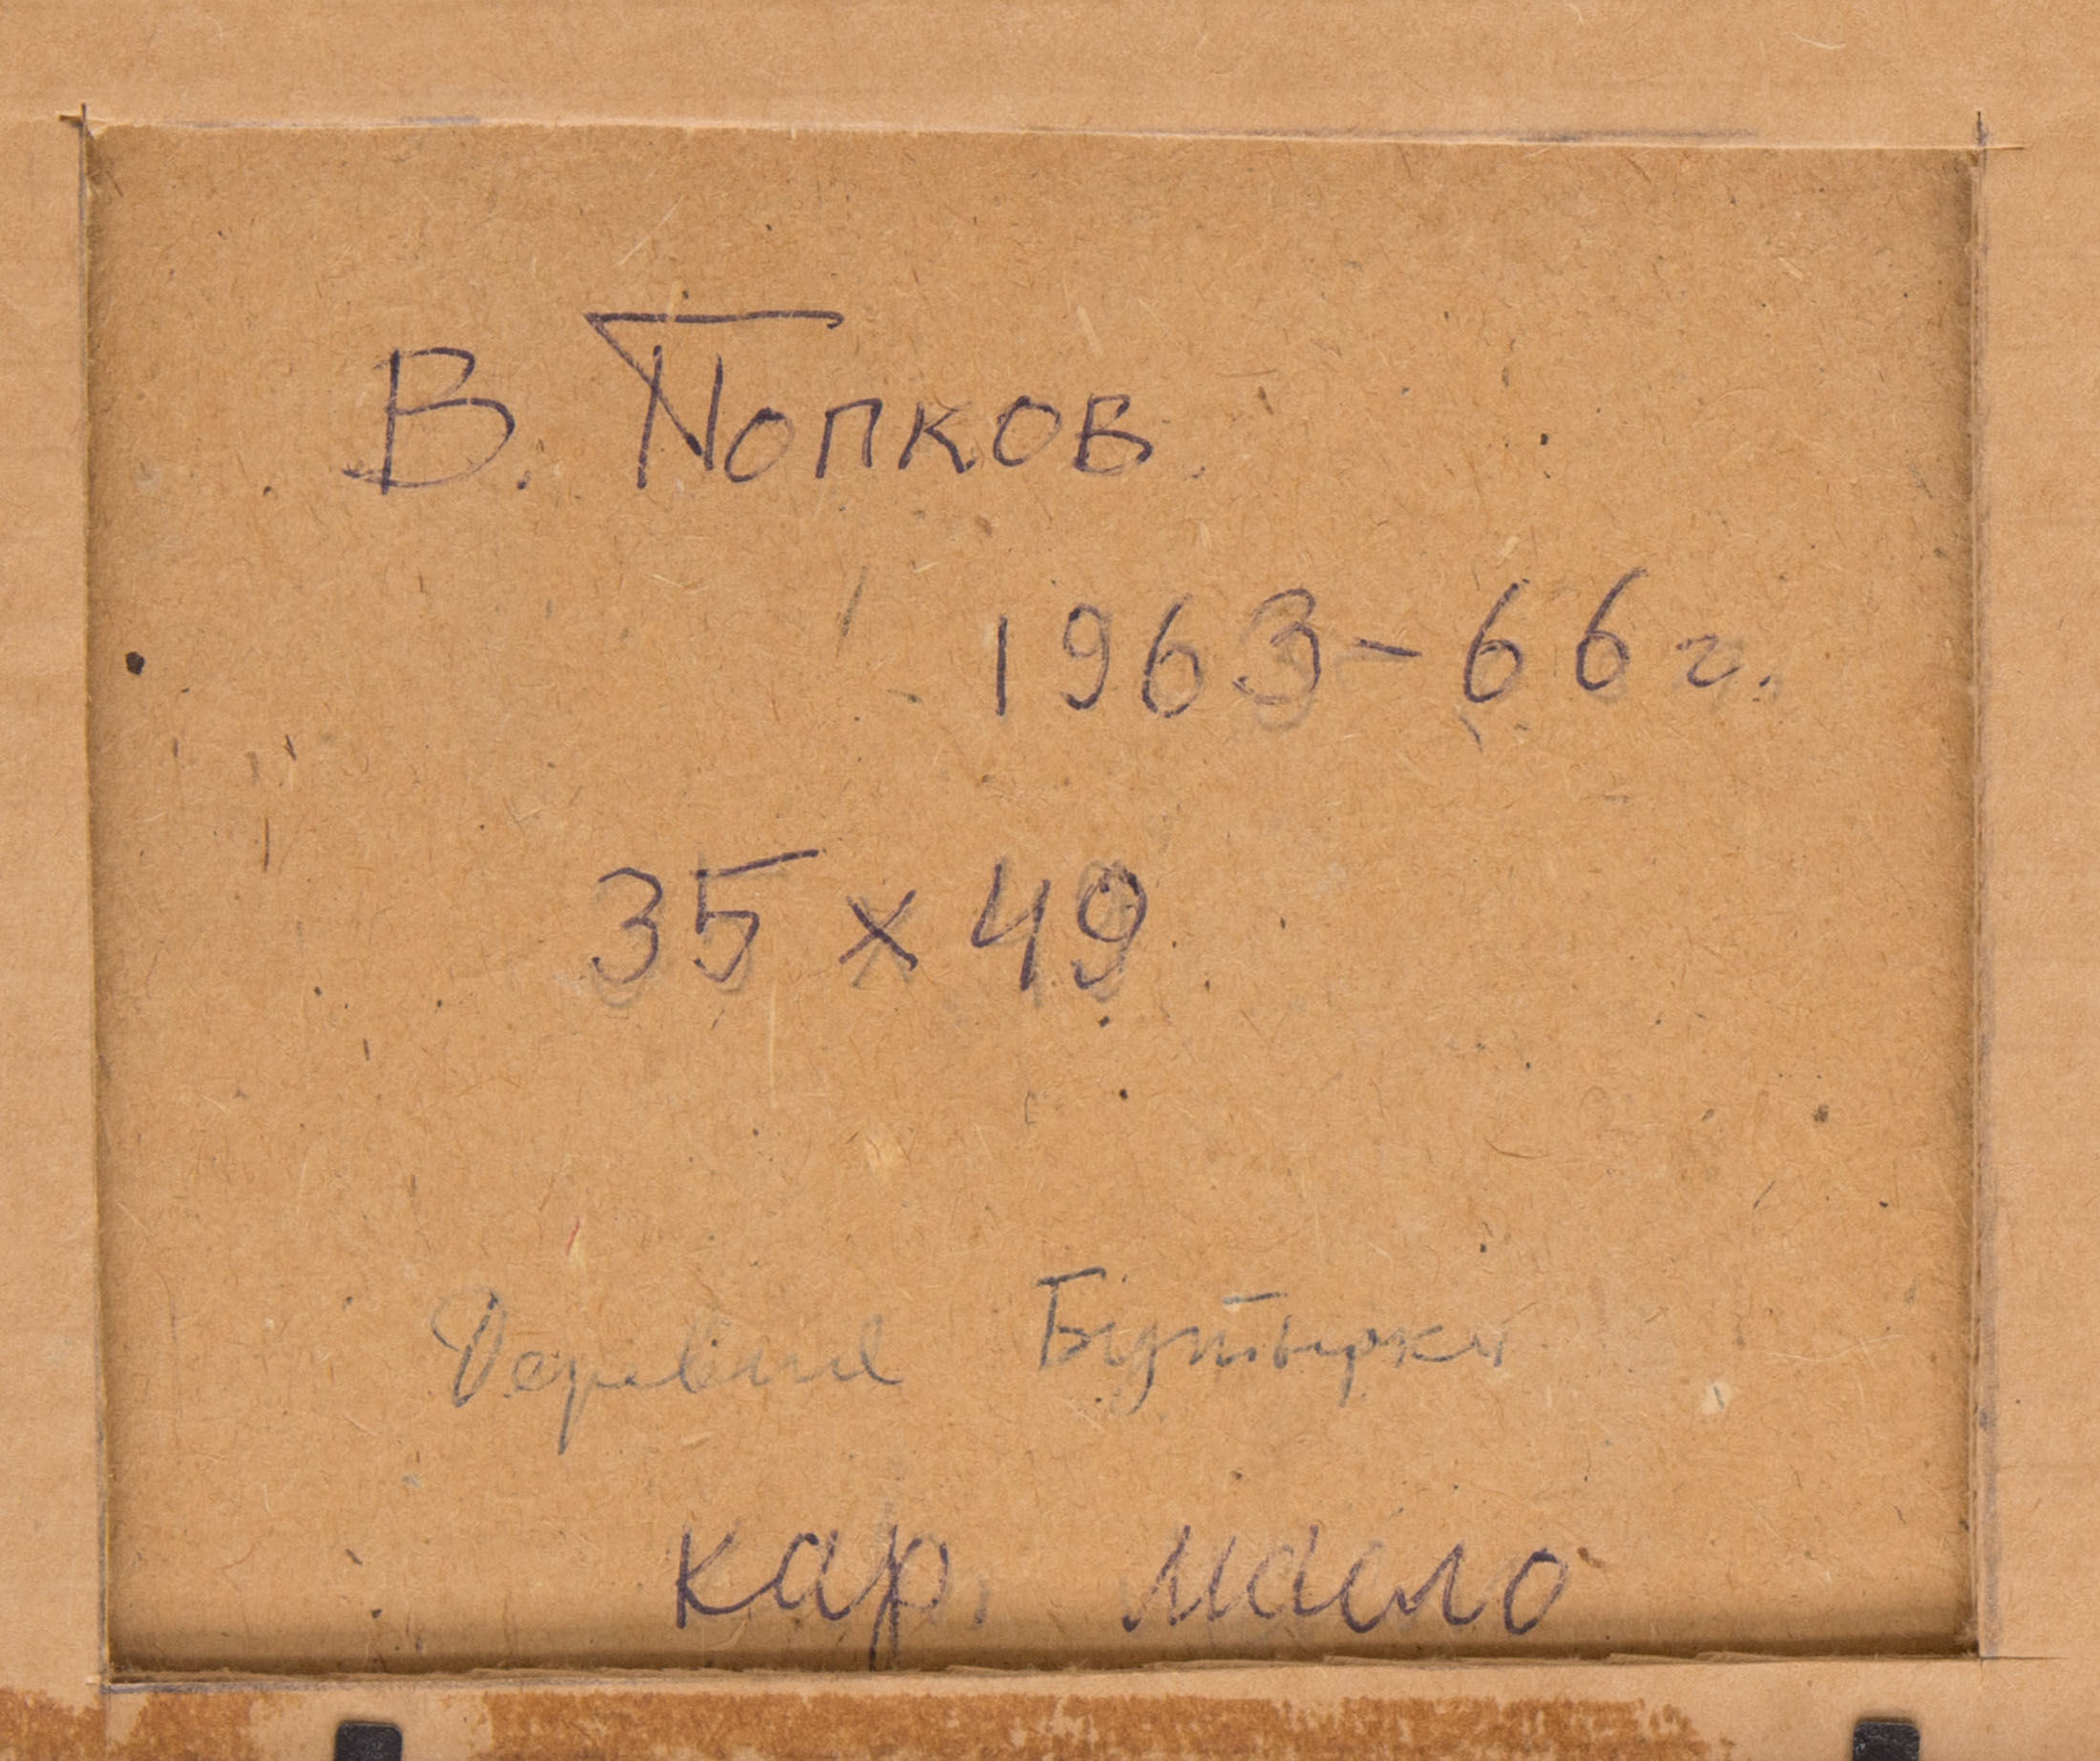 В. Попков
1963-66 г.
35 x 49
Деревня Бутырки
кар. масло